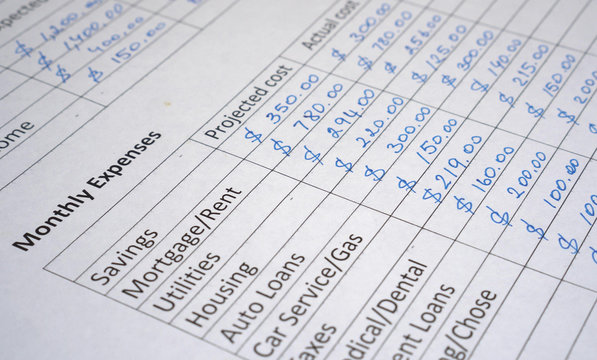 pected
$ 1,200.00
$ 1,400.00
$ 400.00
$ 150.00
ome
Monthly Expenses
Projected cost Actual cost
Savings $ 350.00 $ 300.00
Mortgage/Rent $ 780.00 $ 780.00
Utilities $ 294.00 $ 256.00
Housing $ 220.00 $ 125.00
Auto Loans $ 300.00 $ 300.00
Car Service/Gas $ 150.00 $ 140.00
axes $ 219.00 $ 215.00
dical/Dental $ 160.00 $ 150.00
nt Loans $ 200.00 $ 200
g/Chose $ 100.00
$ 100